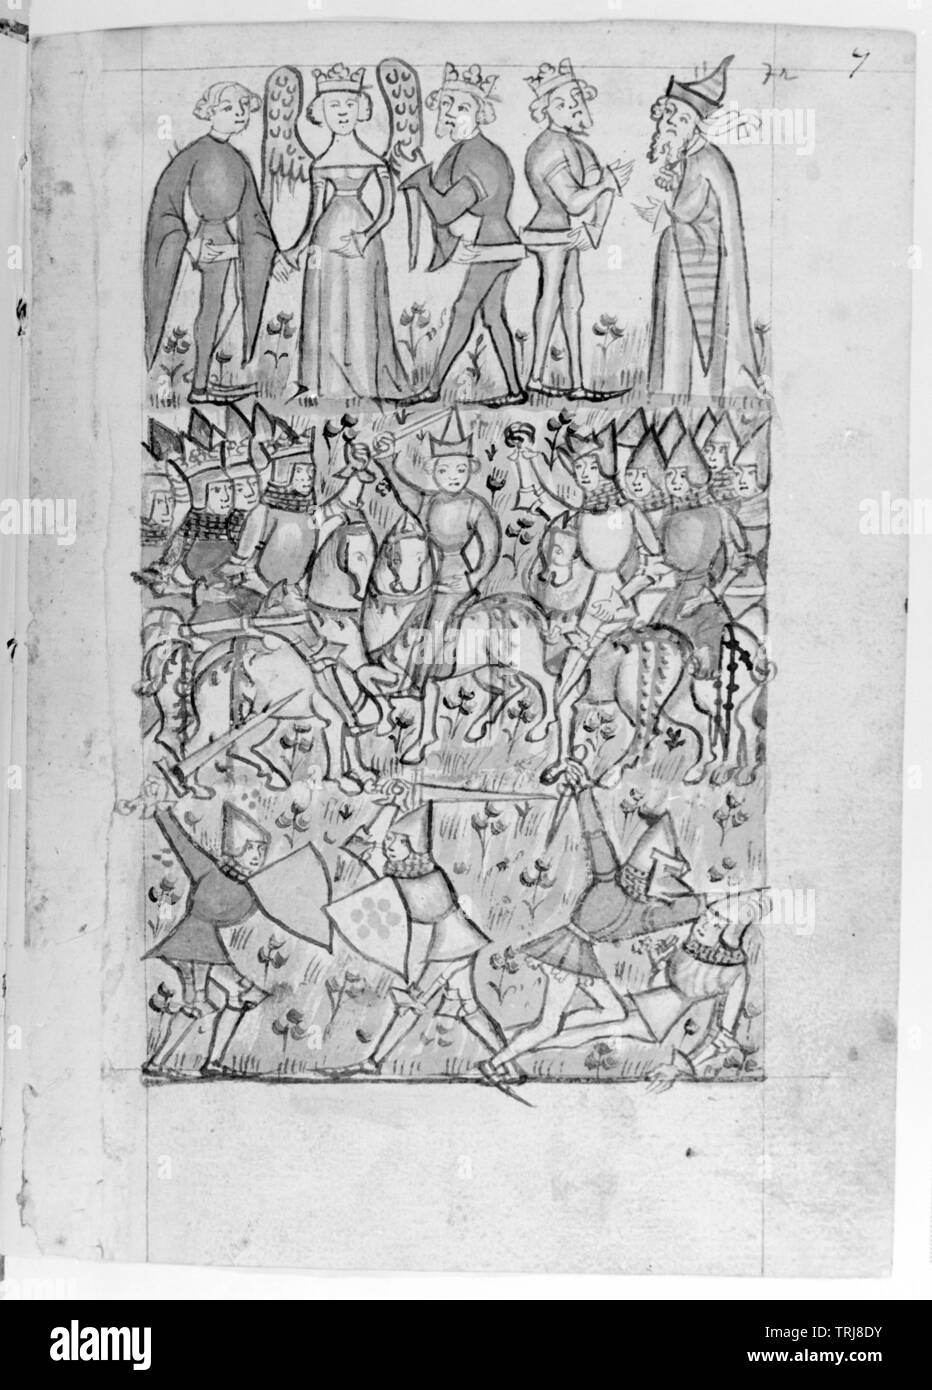 7r 7
alamy
Image ID: TRJ8DY
www.alamy.com